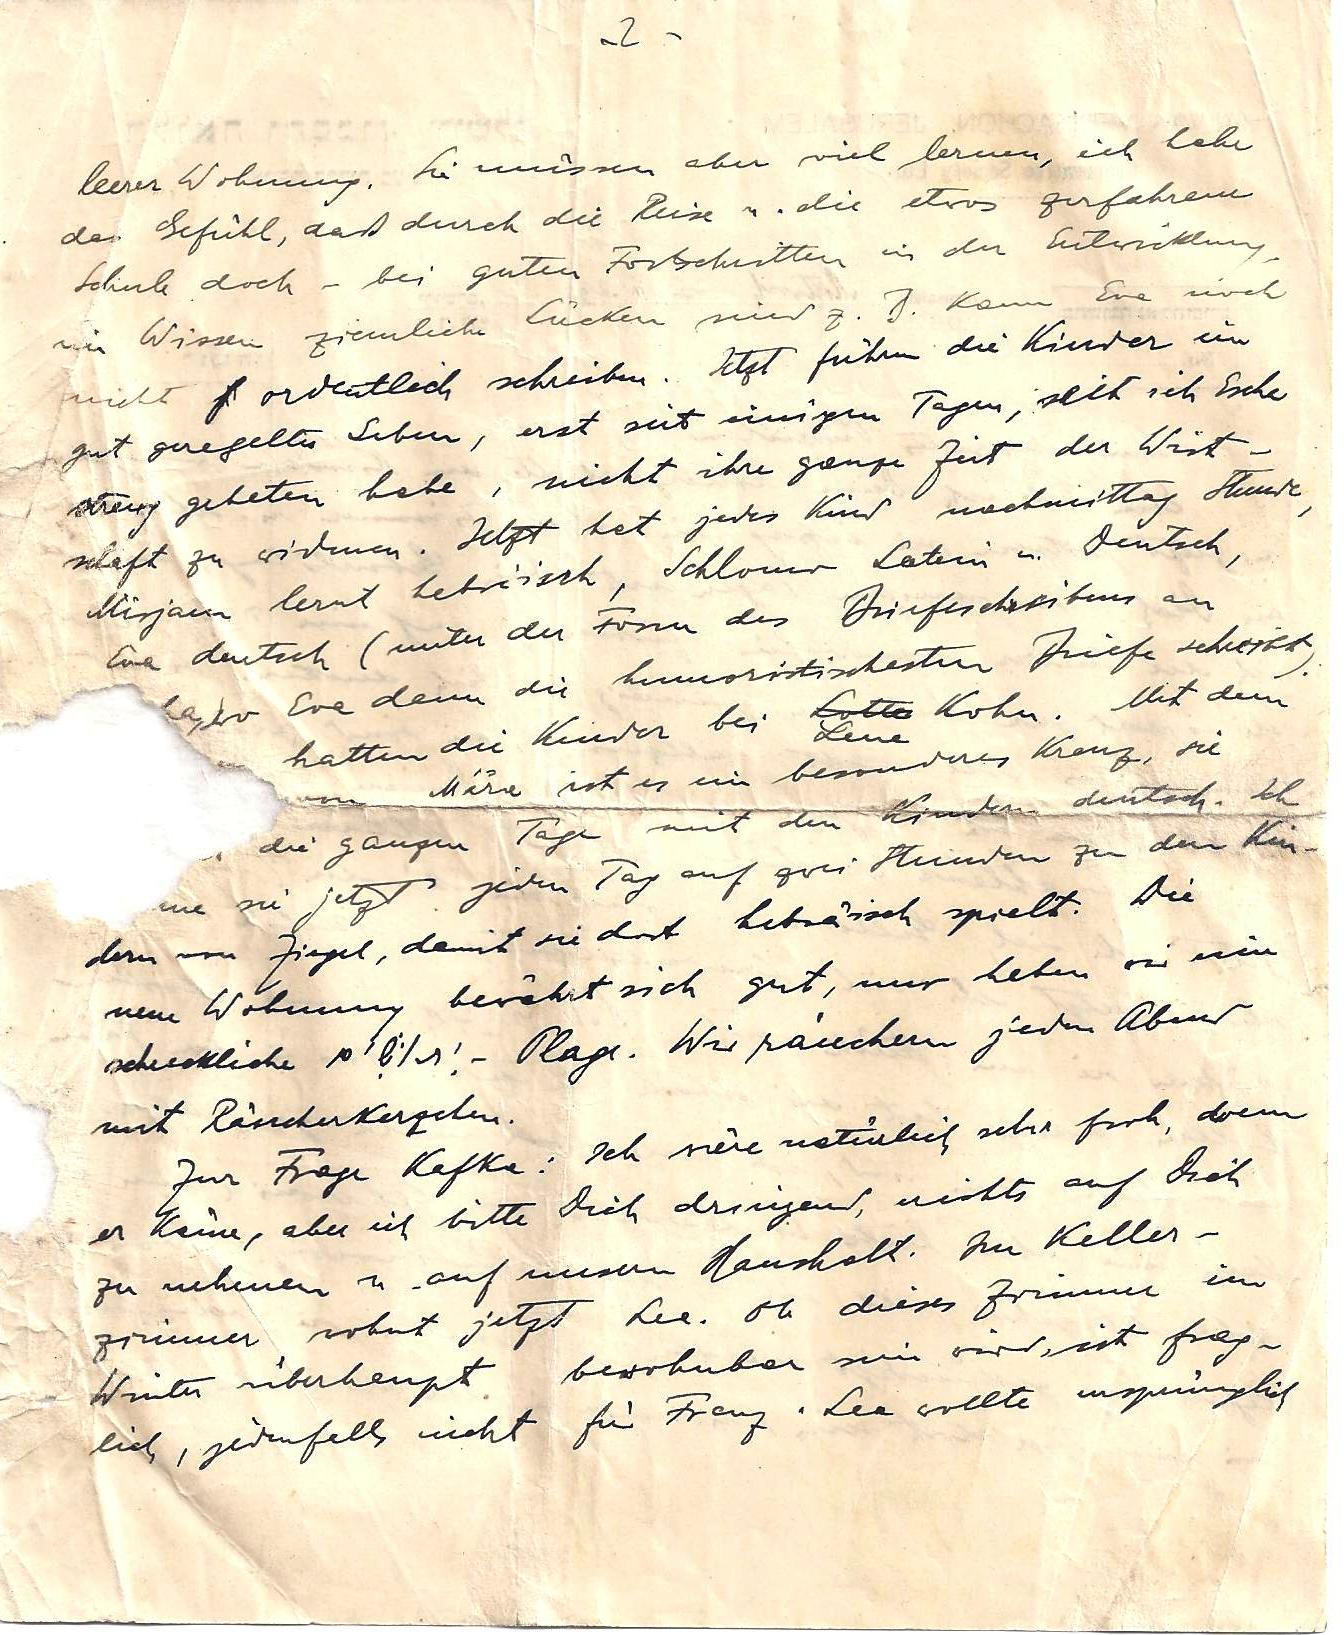 - 2 -
leerer Wohnung. Sie müssen aber viel lernen, ich habe
das Gefühl, daß durch die Reise u. die etwas zerfahrene
Schule doch - bei guten Fortschritten in der Entwicklung -
im Wissen ziemliche Lücken sind z. B. kann Eva noch
nicht ordentlich schreiben. Jetzt führen die Kinder ein
gut geregeltes Leben, erst seit einigen Tagen, seit ich Esche
streng gebeten habe, nicht ihre ganze Zeit der Wirt-
schaft zu widmen. Jetzt hat jedes Kind nachmittag Stunde,
Mirjam lernt hebräisch, Schlomo Latein u. Deutsch,
Eva deutsch (unter der Form des Briefeschreibens an
Eva dann die humoristischesten Briefe schreibt).
hatten die Kinder bei Lotte Kohn. Mit dem
Lene
Märe ist es ein besonderes Kreuz, sie
die ganzen Tage mit den Kindern deutsch. Ich
sie jetzt jeden Tag auf zwei Stunden zu den Kin-
dern von Ziegel, damit sie dort hebräisch spielt. Die
neue Wohnung bewährt sich gut, nur haben wir eine
schreckliche - Plage. Wir räuchern jeden Abend
mit Räucherkerzchen.
Zur Frage Kafka: Ich wäre natürlich sehr froh, wenn
er käme, aber ich bitte Dich dringend, nichts auf Dich
zu nehmen u. auf unsern Haushalt. Im Keller-
zimmer wohnt jetzt Lea. Ob dieses Zimmer im
Winter überhaupt bewohnbar sein wird, ist frag-
lich, jedenfalls nicht für Franz. Lea wollte ursprünglich